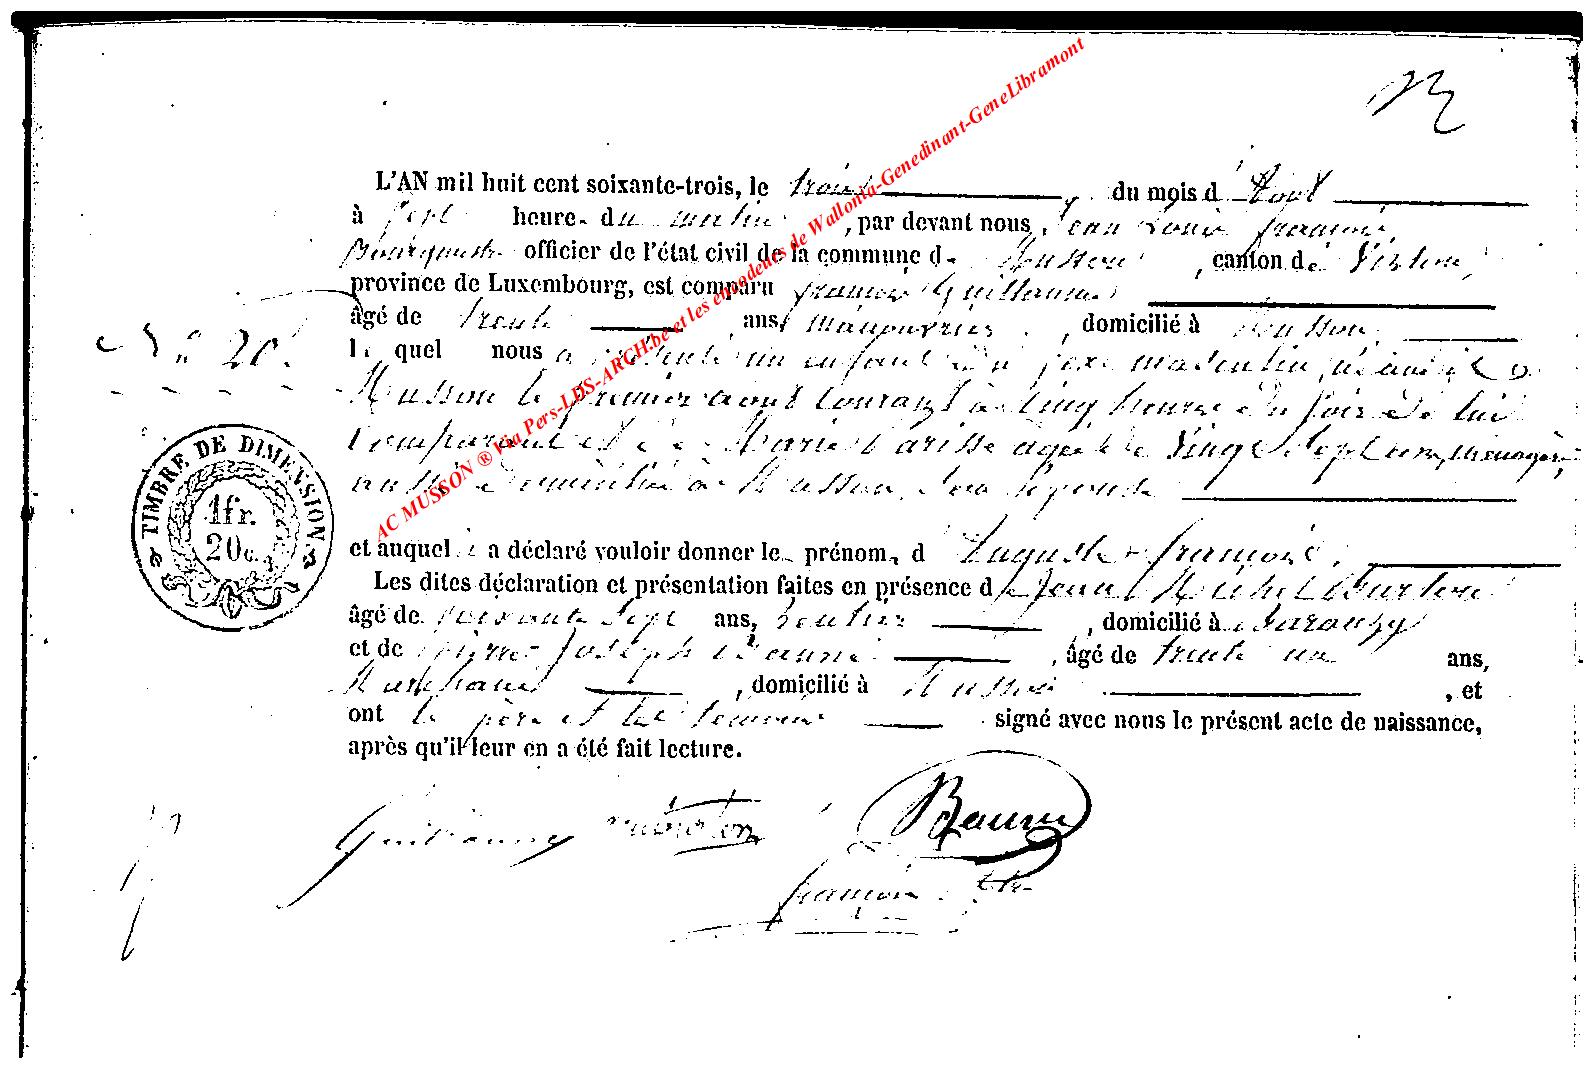 L'AN mil huit cent soixante-trois, le trois du mois d'Aout
à sept heures du matin, par devant nous Jean Louis françois,
Bourgmestre officier de l'état civil de la commune de Musson, canton de Virton,
province de Luxembourg, est comparu françois Guillaume
âgé de trente ans, manouvrier, domicilié à Musson,
lequel nous a présenté un enfant du sexe masculin, né
N° 20.
Musson le premier aout courant à cinq heures du soir de lui
comparant et de Marie agée de vingt sept ans, ménagère,
aussi domiciliée à Musson, son épouse
et auquel il a déclaré vouloir donner les prénoms d'Auguste françois.
Les dites déclaration et présentation faites en présence de Jean Michel
âgé de soixante sept ans, rentier, domicilié à Baranzy
et de Pierre Joseph Baune, âgé de trente un ans,
domicilié à Musson, et
ont le père et les témoins signé avec nous le présent acte de naissance,
après qu'il leur en a été fait lecture.
TIMBRE DE DIMENSION
1fr.
20c.
Guillaume
Baune
françois
AC MUSSON ® Via Pers-LDS-ARCH.be et les encodeurs de Wallonia-Genedinant-GeneLibramont